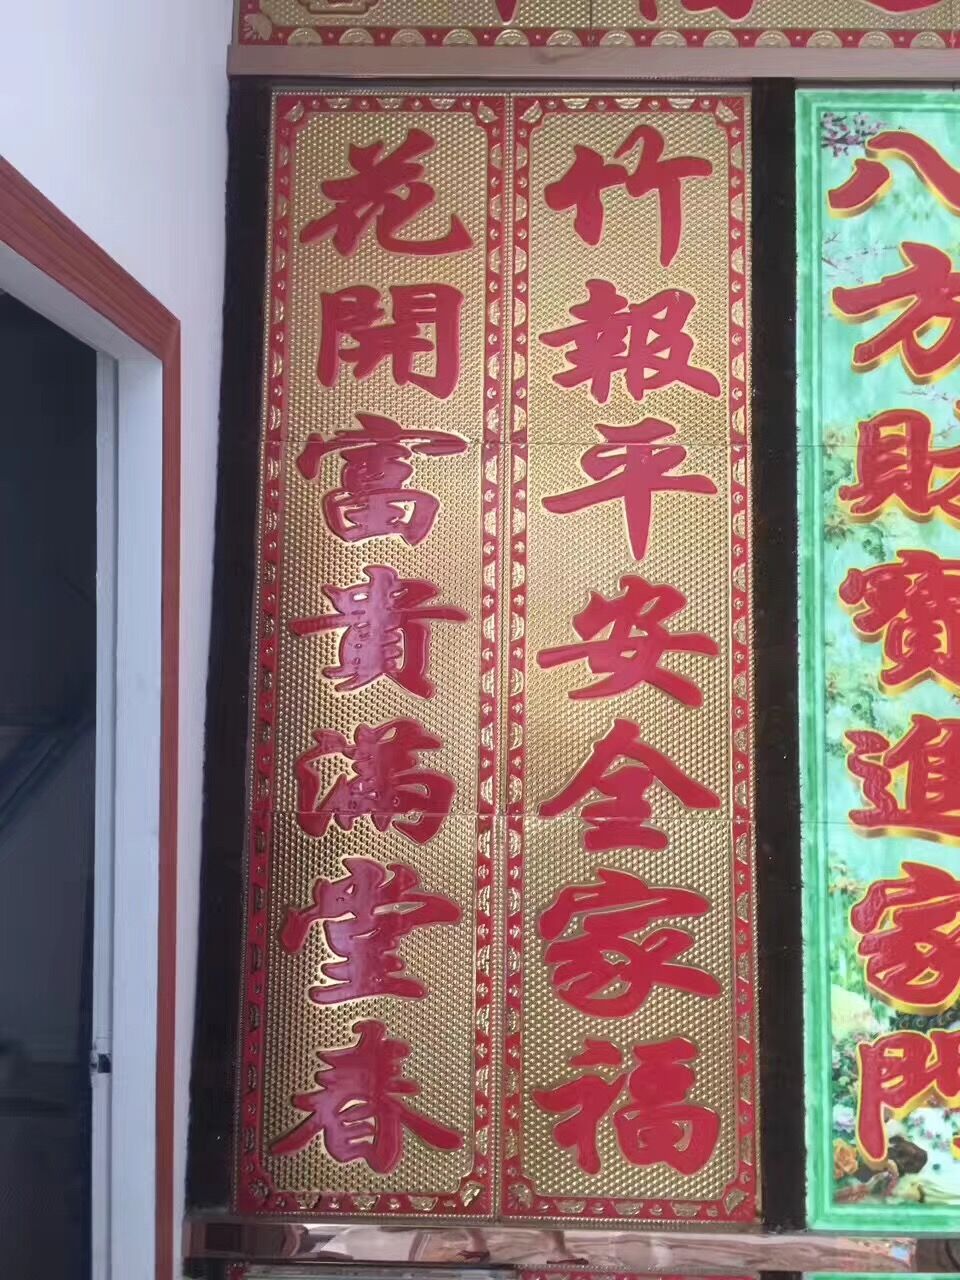 竹報平安全家福
花開富貴滿堂春
八方財寶進家門